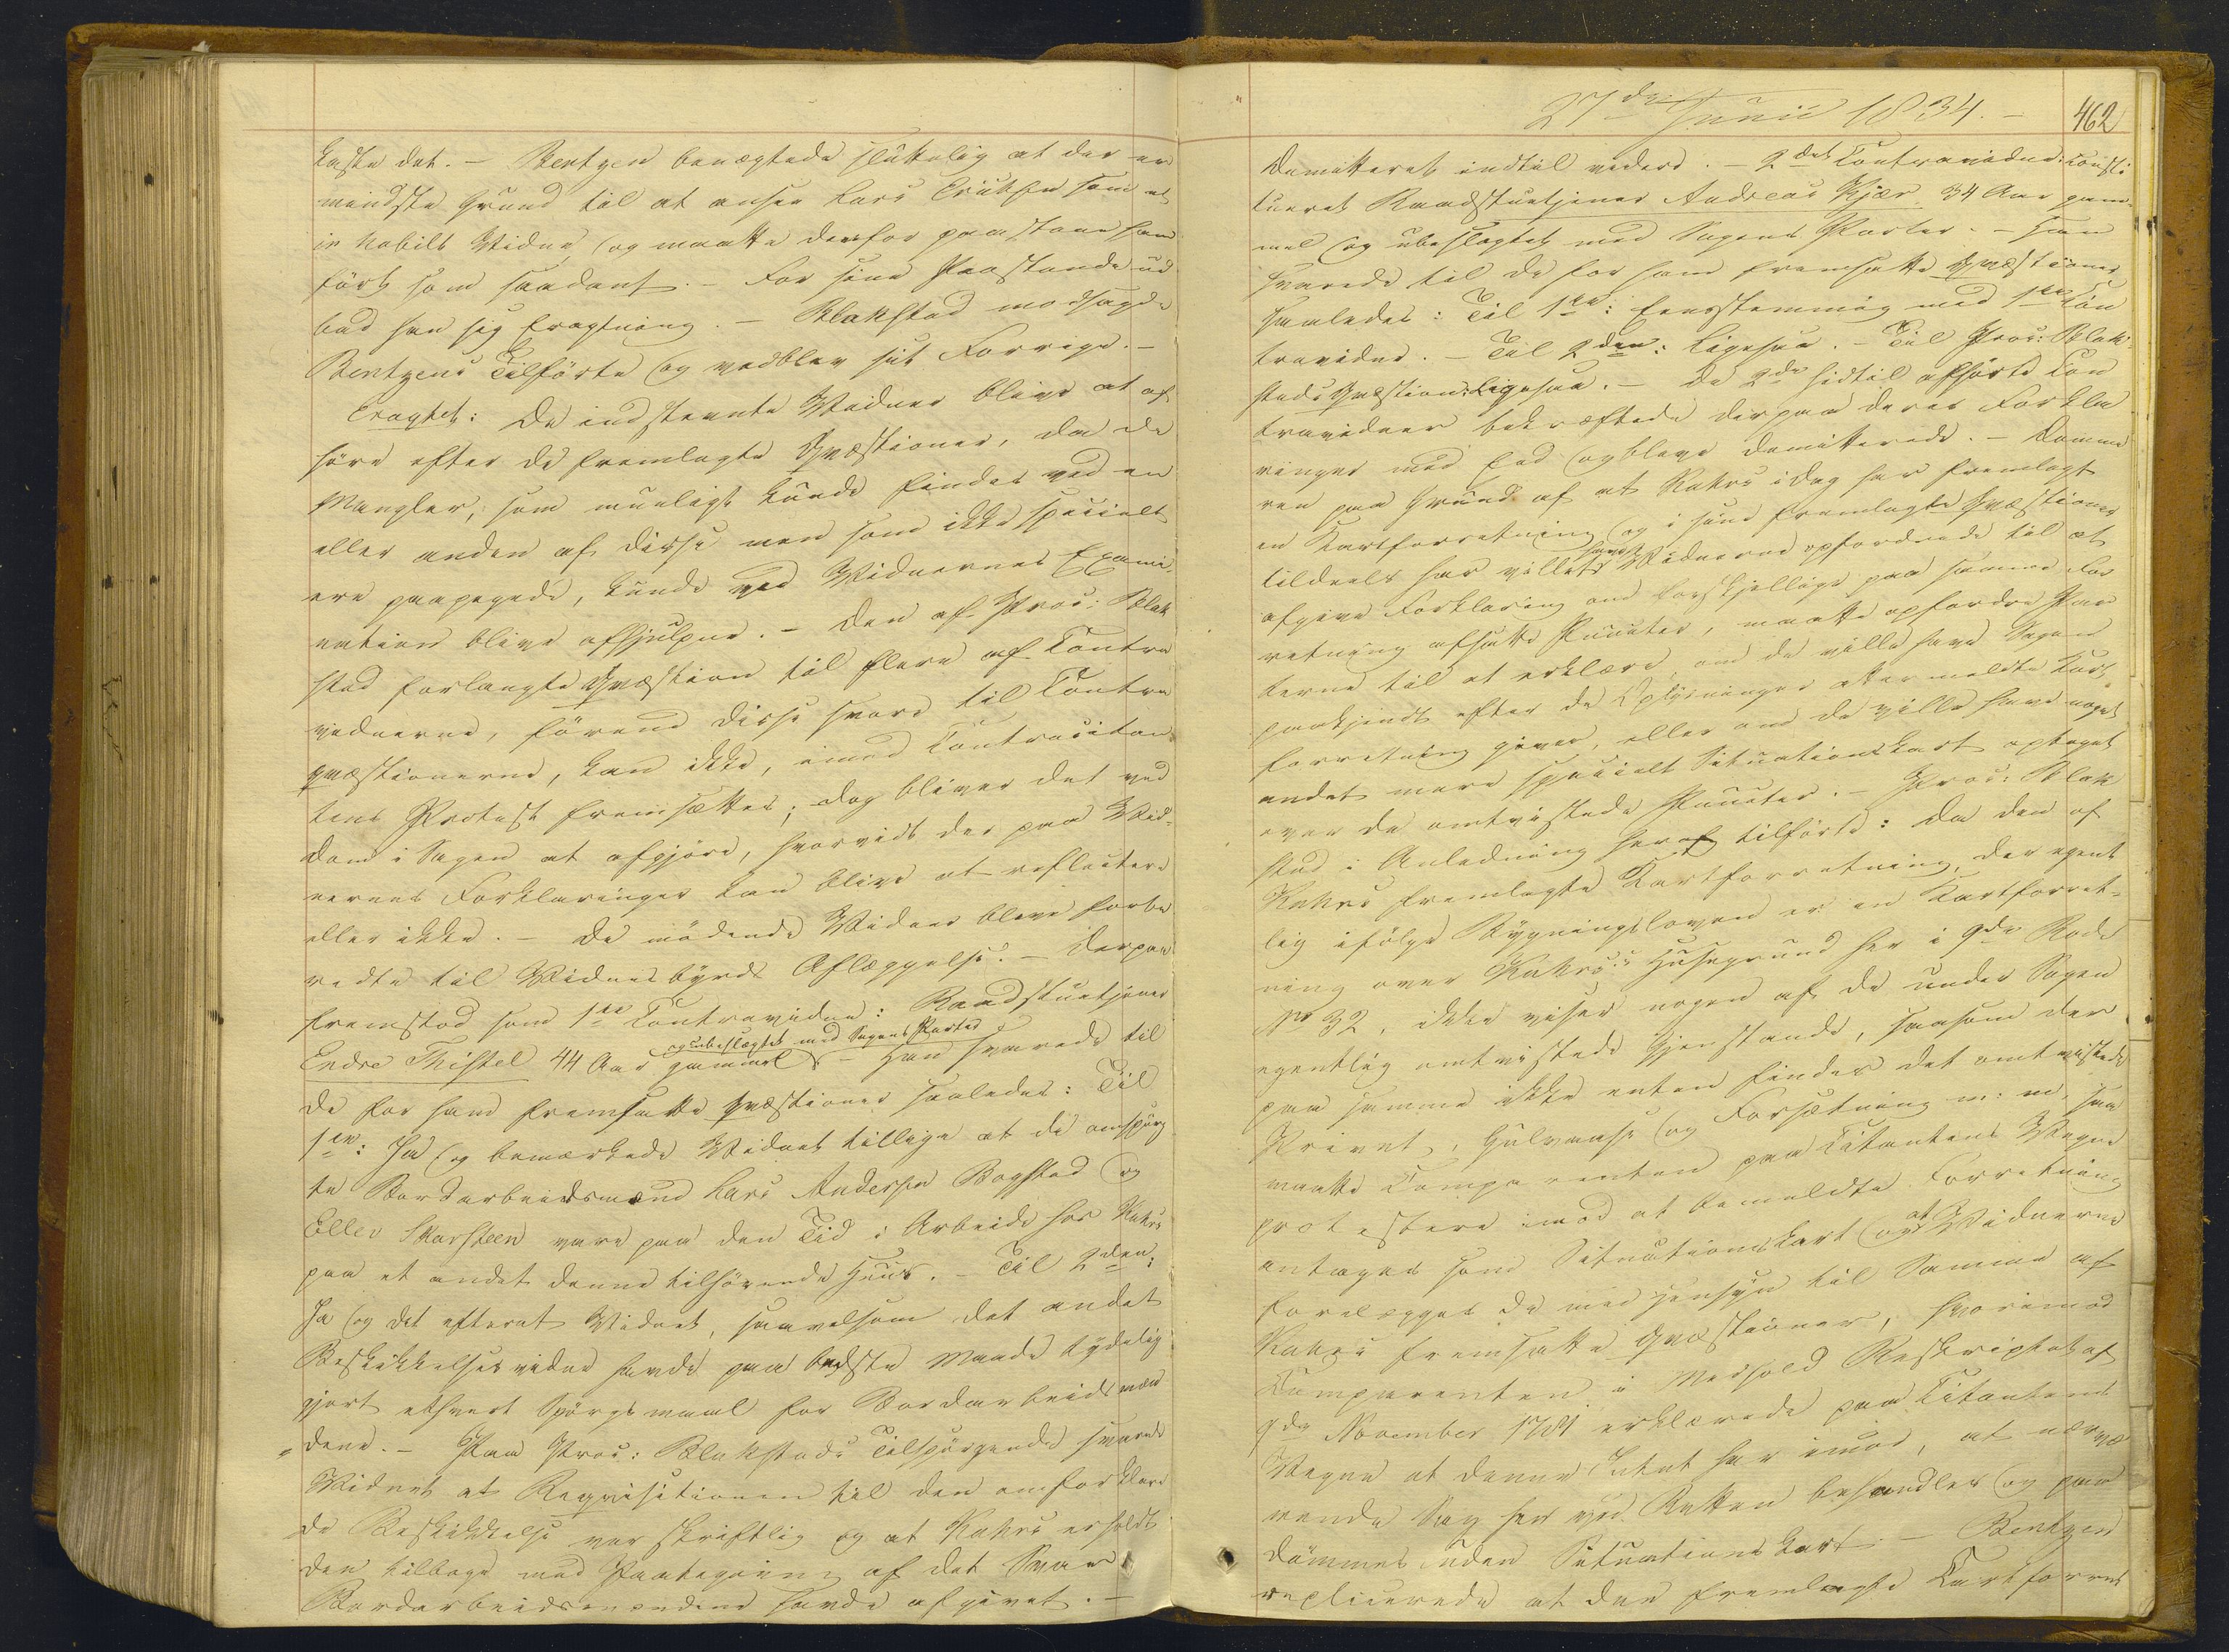 kaste det. – Bentzen benægtede sluttelig at der er
mindste Grund til at ansee Lars Eriksen som et
in habilt Vidne og maatte derfor paastaae ham
ført som saadant. – For sine Paastande ud
bad han sig Eragtning. – Blakstad modsagde
Bentzens Tilførte og vedblev sit Forrige. –
Eragtet: De indstevnte Vidner blive at af
høre efter de fremlagte Qvæstioner, da de
Mangler, som mueligt kunde findes ved en
eller anden af disse men som ikke specielt
ere paapegede, kunde ved Vidnernes Exami
nation blive afhjulpne. – Den af Proc: Blak
stad forlangte Qvæstion til flere af Contra
vidnerne, førend disse svare til Contra
qvæstionerne, kan ikke, imod Contracitan
tens Protest fremsættes; dog bliver det ved
Dom i Sagen at afgjøre, hvorvidt der paa Vid-
nernes Forklaringer kan blive at reflectere
eller ikke. – De mødende Vidner bleve forbe
redte til Vidnesbyrds Aflæggelse. – Derpaa
fremstod som 1ste Contravidne: Raadstuetjener
Endre Thistel 44 Aar gammel og ubeslægtet med Sagens Parter – Han svarede til
de for ham fremsatte Qvæstioner saaledes: Til
1ste: Ja og bemærkede Vidnet tillige at de omspurg
te Bordarbeidsmænd Lars Andersen Bogstad og
Ellev Skarsteen vare paa den Tid i Arbeide hos Kahrs
paa et andet denne tilhørende Huus. – Til 2den:
Ja og det efterat Vidnet, saavelsom det andet
Beskikkelsesvidne havde paa bedste Maade tydelig
gjort ethvert Spørgsmaal for Bordarbeidsmæn
dene. – Paa Proc: Blakstads Tilspørgende svarede
Vidnet at Reqvisitionen til den omforklare
de Beskikkelse var skriftlig og at Kahrs erholdt
den tilbage med Paategning af det Svar
Bordarbeidsmændene havde afgivet. –
27de Junii 1834. –
462
Demitteret indtil videre. – 2det Contravidne: Consti
tueret Raadstuetjener Andreas Kjær 34 Aar gam
mel og ubeslægtet med Sagens Parter. – Han
svarede til de for ham fremsatte Qvæstioner
saaledes: Til 1ste: Eensstemmig med 1ste Con
travidne. – Til 2den: Ligesaa. – Til Proc: Blak
stads Qvæstion: Ligesaa. – De 2de hidtil afhørte Con
travidner bekræftede derpaa deres Forkla
ringer med Eed og bleve demitterede. – Domme
ren paa Grund af at Kahrs idag har fremlagt
en Kartforretning og i sine fremlagte Qvæstioner
tildeels har villet have Vidnerne opfordrede til at
afgive Forklaring om forskjellige paa samme For
retning afsatte Puncter, maatte opfordre Par
terne til at erklære, om de ville have Sagen
paakjendt efter de Oplysninger ommeldte Kart
forretning giver, eller om de ville have noget
andet mere specielt Situationskart optaget
over de omtvistede Puncter. – Proc: Blak
stad i Anledning heraf tilførte: Da den af
Kahrs fremlagte Kartforretning, der egent
lig ifølge Bygningsloven er en Kartforret-
ning over Kahrs's Huusegrund her i 9de Rode
No 32, ikke viser nogen af de under Sagen
egentlig omtvistede Gjenstande, saasom der
paa samme ikke enten findes det omtvistede
Privet, Gulvaase og Forsætning m: m: saa
maatte Comparenten paa Citantens Vegne
protestere imod at bemeldte Forretning
antages som Situationskart og at Vidnerne
forelægges de med Hensyn til Samme af
Kahrs fremsatte Qvæstioner, hvorimod
Comparenten i Medhold Reskriptet af
9de November 1781 erklærede paa Citantens
Vegne at denne Intet har imod, at nærvæ
rende Sag her ved Retten behandles og paa
dømmes uden Situationskart. – Bentzen
replicerede at den fremlagte Kartforret